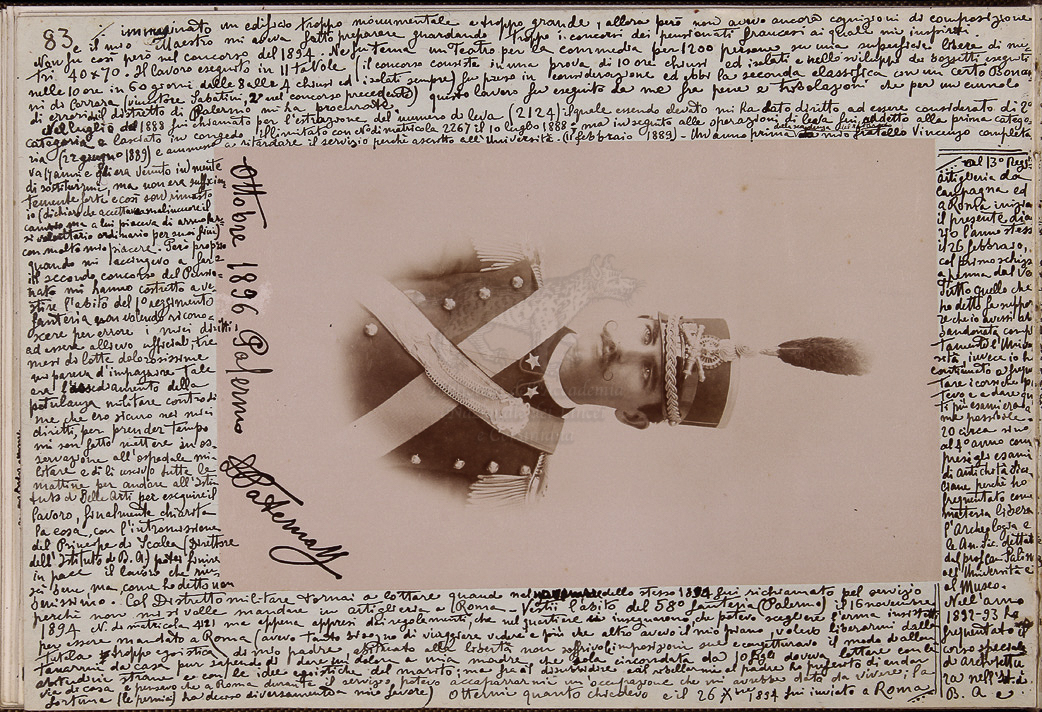 83
immaginato un edificio troppo monumentale e troppo grande, allora però non avevo ancora cognizioni di composizione
e il mio Maestro mi aveva fatto preparare guardando troppo i concorsi dei pensionati francesi ai quali mi inspirai.
Non fu così però nel concorso del 1894. Ne fu tema un Teatro per la commedia per 1200 persone su una superficie libera di me-
tri 40 x 70. Il lavoro eseguito in 11 tavole (il concorso consiste in una prova di 10 ore chiusi ed isolati e nello sviluppo dei bozzetti eseguito
nelle 10 ore in 60 giorni dalle 8 alle 4 chiusi ed isolati sempre) fu preso in considerazione ed ebbi la seconda classifica con un certo Bonan
ni di Carrara (vincitore Sabatini, 2° nel concorso precedente) questo lavoro fu eseguito da me fra pene e tribolazioni che per un cumulo
di errori il distretto di Palermo mi ha procurate.
Nel luglio del 1888 fui chiamato per l'estrazione del numero di leva (2124) il quale essendo elevato mi ha dato diritto ad essere considerato di 2°
categoria e lasciato in congedo illimitato con No di matricola 2267 il 10 luglio 1888, ma in seguito alle operazioni di leva fui addetto alla prima catego-
ria (22 giugno 1889) e ammesso a ritardare il servizio perchè ascritto all'Università. (11 febbraio 1889) - Un anno prima mio fratello Vincenzo completa
va 17 anni e gli era venuto in mente
di sostituirmi, ma non era sufficien
temente forte, e così son rimasto
io (dichiaro che accettava malincuore il
cambio ma a lui piaceva di arruolar
si volontario ordinario per suoi fini)
con molto mio piacere. Però proprio
quando mi accingevo a fare
il secondo concorso del Pensio-
nato mi hanno costretto a ve-
stire l'abito del 1° reggimento
fanteria non volendo ricono-
scere per errore i miei diritti
ad essere allievo ufficiale, tre
mesi di lotte dolorosissime
mi pareva d'impazzire tale
era l' della
petulanza militare contro di
me che ero sicuro nei miei
diritti, per prender tempo
mi son fatto mettere in os-
servazione all'ospedale mi-
litare e di lì uscivo tutte le
mattine per andare all'Isti-
tuto di Belle Arti per eseguire il
lavoro, finalmente chiarita
la cosa, con l'intromissione
del Principe di Scalea (Direttore
dell'Istituto di B. A.) potei finire
in pace il lavoro che riu-
scì bene ma, come ho detto non
benissimo. - Col Distretto militare tornai a lottare quando nel dello stesso 1894 fui richiamato pel servizio
perchè non mi si volle mandare in artiglieria a (Roma - Vestii l'abito del 58° fanteria (Palermo) il 16 novembre
1894 N. di matricola 4121 ma appena appresi dai regolamenti, che nel quartiere si insegnavano, che potevo scegliere l'arma insistetti
per essere mandato a Roma (avevo tanto bisogno di viaggiare vedere e più che altro avevo il mio piano, volevo liberarmi dalla
tutela troppo egoistica di mio padre abituato alla libertà non soffrivo imposizioni sue e continuare il modo di allon
tanarmi da casa pur sapendo di dare un dolore a mia madre che sola circondata da 10 figli doveva lottare con le
abitudini strane e con le idee egoistiche del marito; ma fra il distruggere e il ribellarmi al padre ho preferito di andar
via di casa e pensavo che a Roma durante il servizio potevo accaparrarmi un'occupazione che mi avrebbe dato da vivere; la
fortuna (le permisi) ha deciso diversamente a mio favore) Ottenni quanto chiedevo e il 26 Xbre 1894 fui inviato a Roma
al 13° Regg
artiglieria da
campagna ed
a Roma iniziai
il presente dia
rio l'anno stesso
il 26 febbraio,
col primo schizzo
a penna dal Vo
Tutto quello che
ho detto fa suppor
re che io avessi ab
bandonata comp
tamente l'Univer
sità, invece io ho
continuato a frequen
tare i corsi che po
tevo e a dare qu
ti più esami era a
me possibile.
20 circa sino
al 4° anno com
presi gli esami
di antichità Sici
liane perchè ho
frequentato come
materia libera
l'Archeologia e
le An. Sic. dettate
dal prof. Cav. Salinas
all'Università e
al Museo.
Nell'anno
1892-93 ho
frequentato il
corso speciale
di architettu
ra nell'Ist. di
B. A. e
Ottobre 1896 Palermo